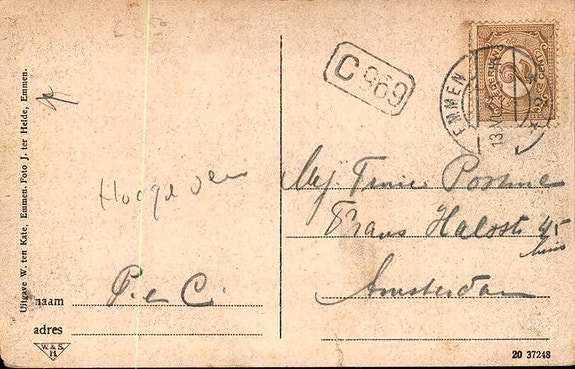 Uitgave W. ten Kate, Emmen. Foto J. ter Heide, Emmen.
Hoogeveen
naam P. e C.
adres
W. & S.
H
C 969
EMMEN
13
NEDERLAND
2
CENT
Mej Trinie Postma
Frans Halsst 45
huis
Amsterdam
20 37248